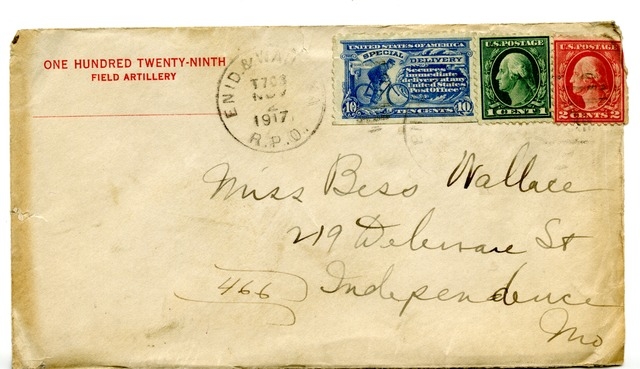 ONE HUNDRED TWENTY-NINTH
FIELD ARTILLERY
ENID. & WA
T703
NOV
2
1917.
R.P.O.
UNITED STATES OF AMERICA
SPECIAL DELIVERY
Secures
immediate
delivery at any
United States
Post Office
10 TEN CENTS 10
U.S. POSTAGE
1 CENT 1
U.S. POSTAGE
2 CENTS 2
Miss Bess Wallace
219 Delaware St
466 Independence
Mo